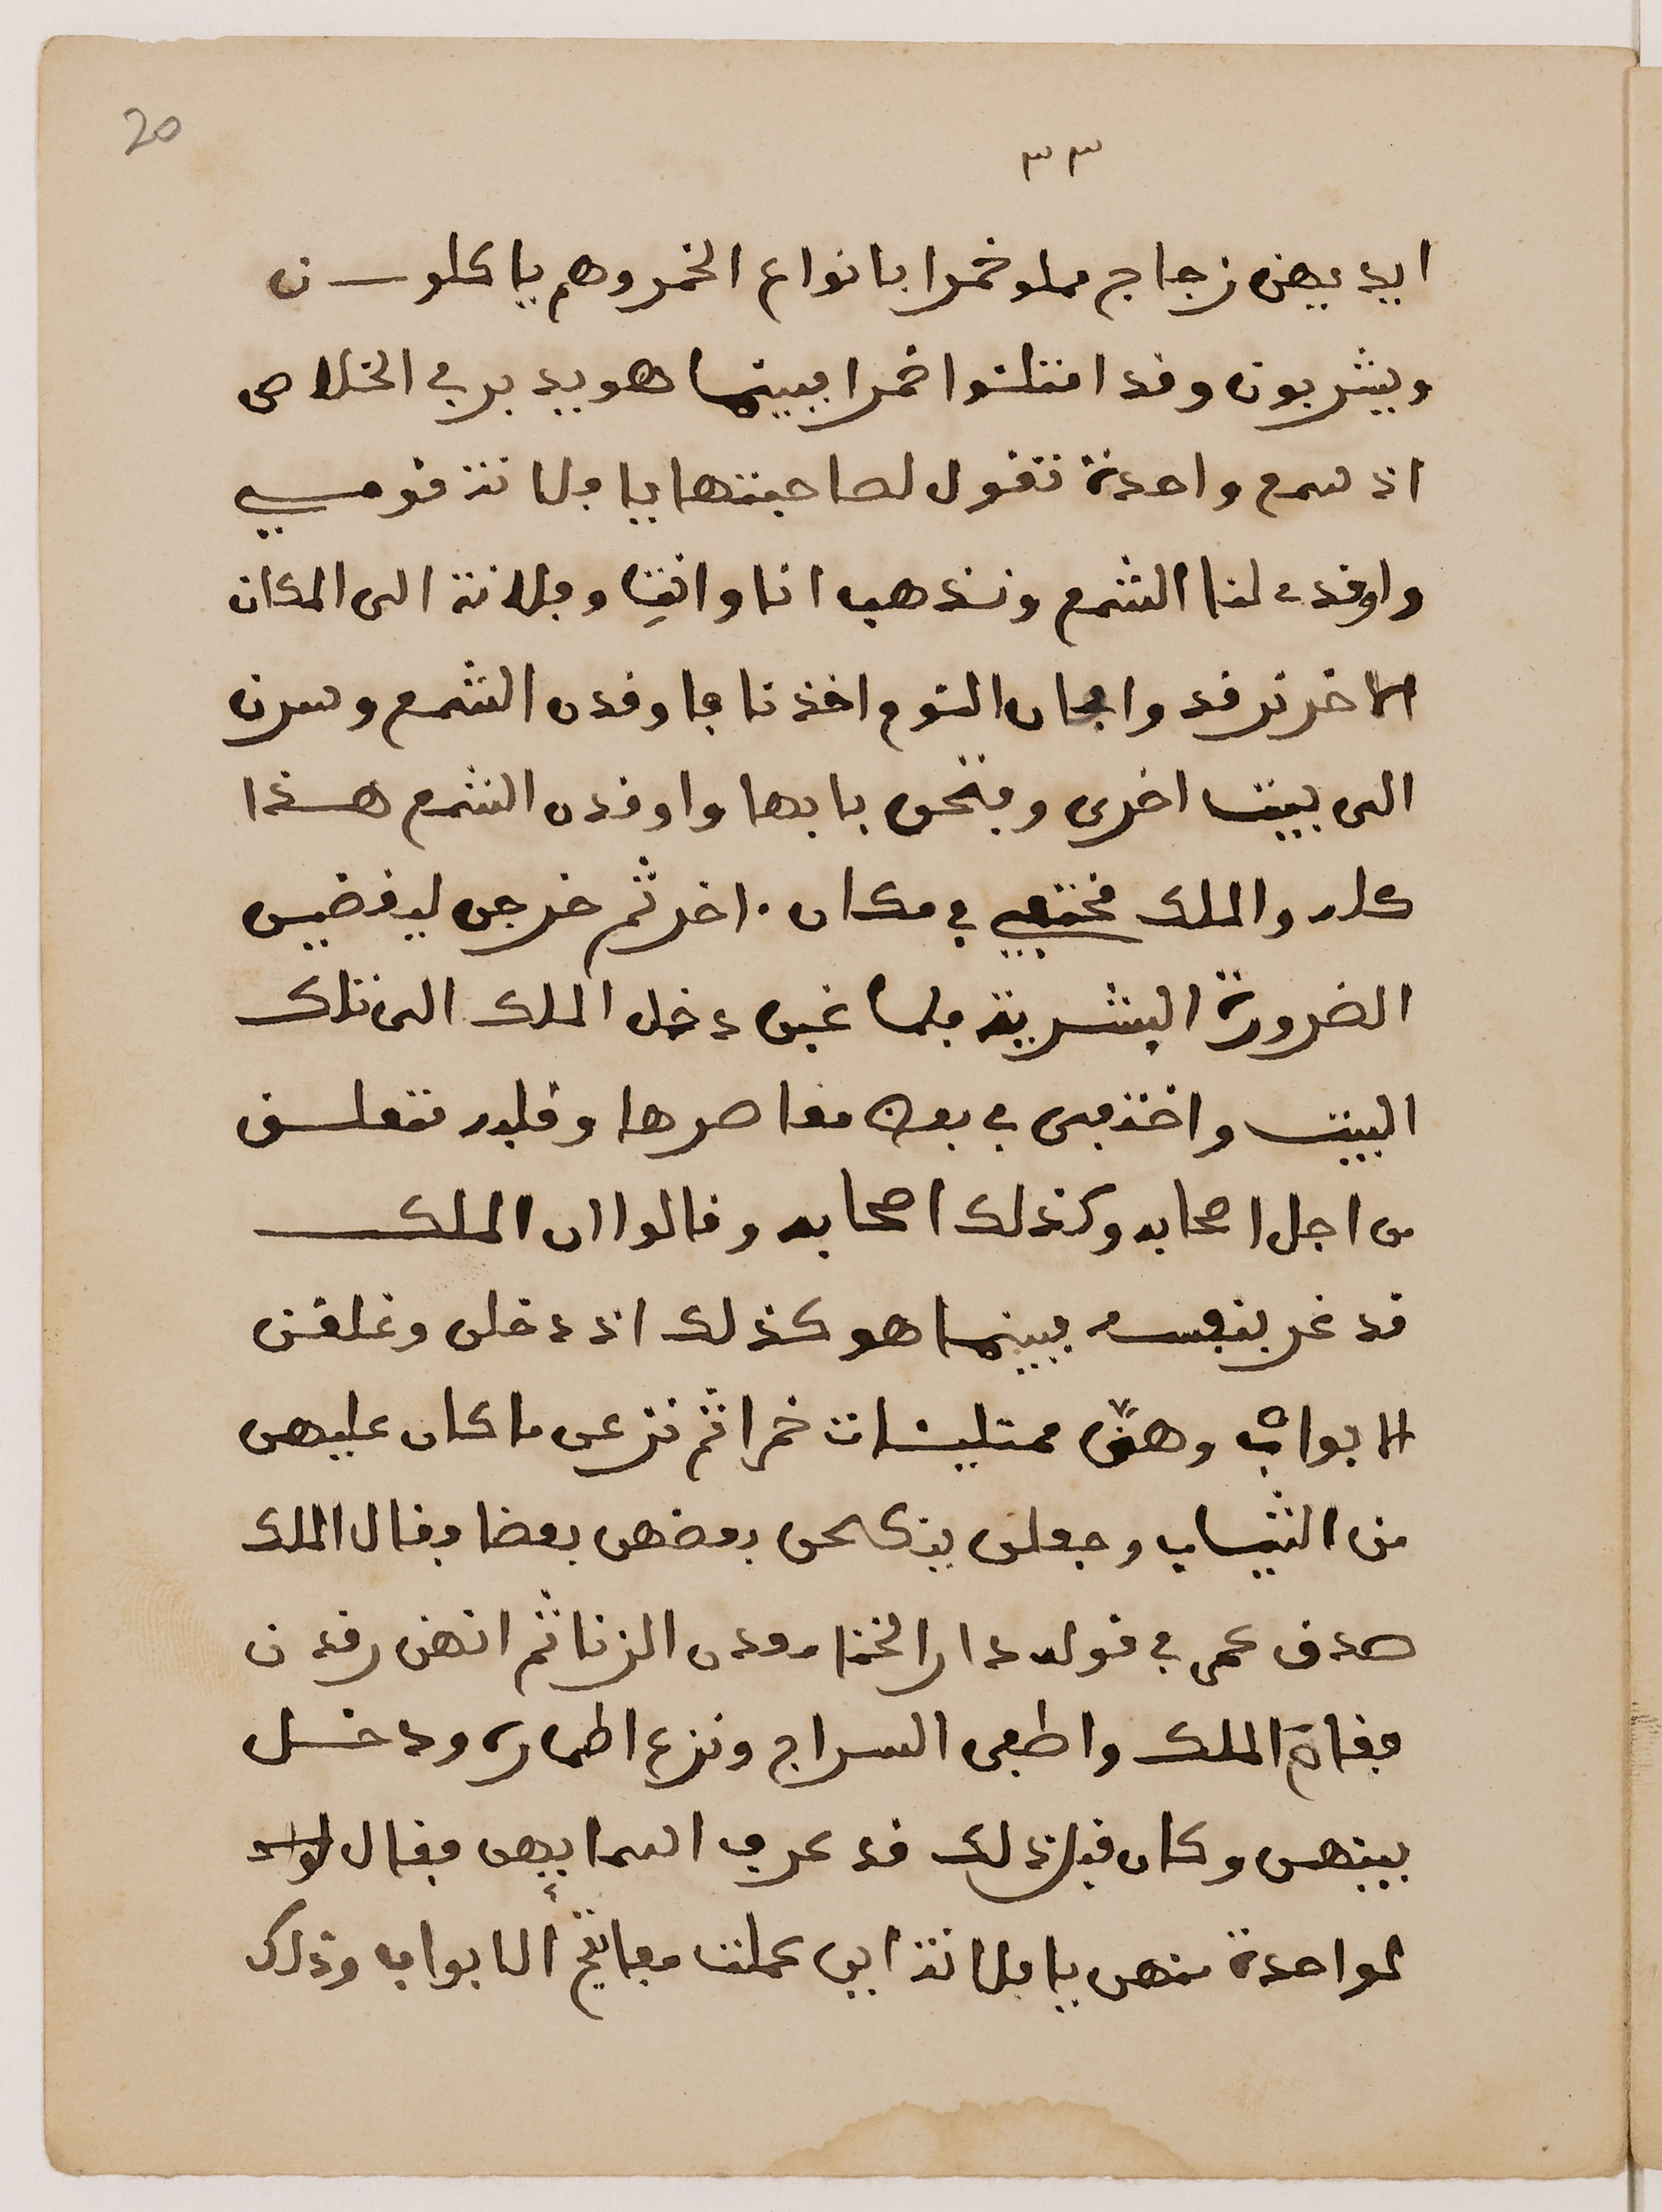 20
٣٣
ايديهن زجاج مملو خمرا بانواع الخمر وهم ياكلون
ويشربون وقد امتلئوا خمرا فبينما هو يدبر في الخلاص
اذ سمع واحدة تقول لصاحبتها يا فلانة قومي
واوقدي لنا الشمع ونذهب انا وانتِ وفلانة الى المكان
الاخر نرقد وا النوم اخذنا فاوقدن الشمع وسرن
الى بيت اخرى وفتحن بابها واوقدن الشمع هذا
كله والملك مختفي في مكان اخر ثم خرجن ليقضين
الضرورة البشرية فلما غبن دخل الملك الى تلك
البيت واختفى في بعض مقاصرها وقلبه متعلق
من اجل اصحابه وكذلك اصحابه وقالوا ان الملك
قد غر بنفسه فبينما هو كذلك اذ دخلن وغلقن
الابواب وهنّ ممتليئات خمرا ثم نزعن ما كان عليهن
من الثياب وجعلن ينكحن بعضهن بعضا فقال الملك
صدق عمي في قوله دار الخنا ومعدن الزنا ثم انهن رقدن
فقام الملك واطفى السراج ونزع اطماره ودخل
بينهن وكان قبل ذلك قد عرف اسمايهن فقال
لواحدة منهن يا فلانة اين عملت مفاتيح الابواب وذلك